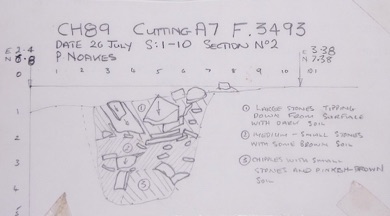 CH89 CUTTING A7 F.3493
DATE 26 JULY S:1-10 SECTION Nº2
P NOAKES
E 2.4
N 6.8
E 3.38
N 7.38
0 1 2 3 4 5 6 7 8 9 10
1
2
3
4
5
6
① LARGE STONES TIPPING
DOWN FROM SURFACE
WITH DARK SOIL
② MEDIUM - SMALL STONES
WITH SOME BROWN SOIL
③ CHIPPLES WITH SMALL
STONES AND PINKISH-BROWN
SOIL
①
②
③